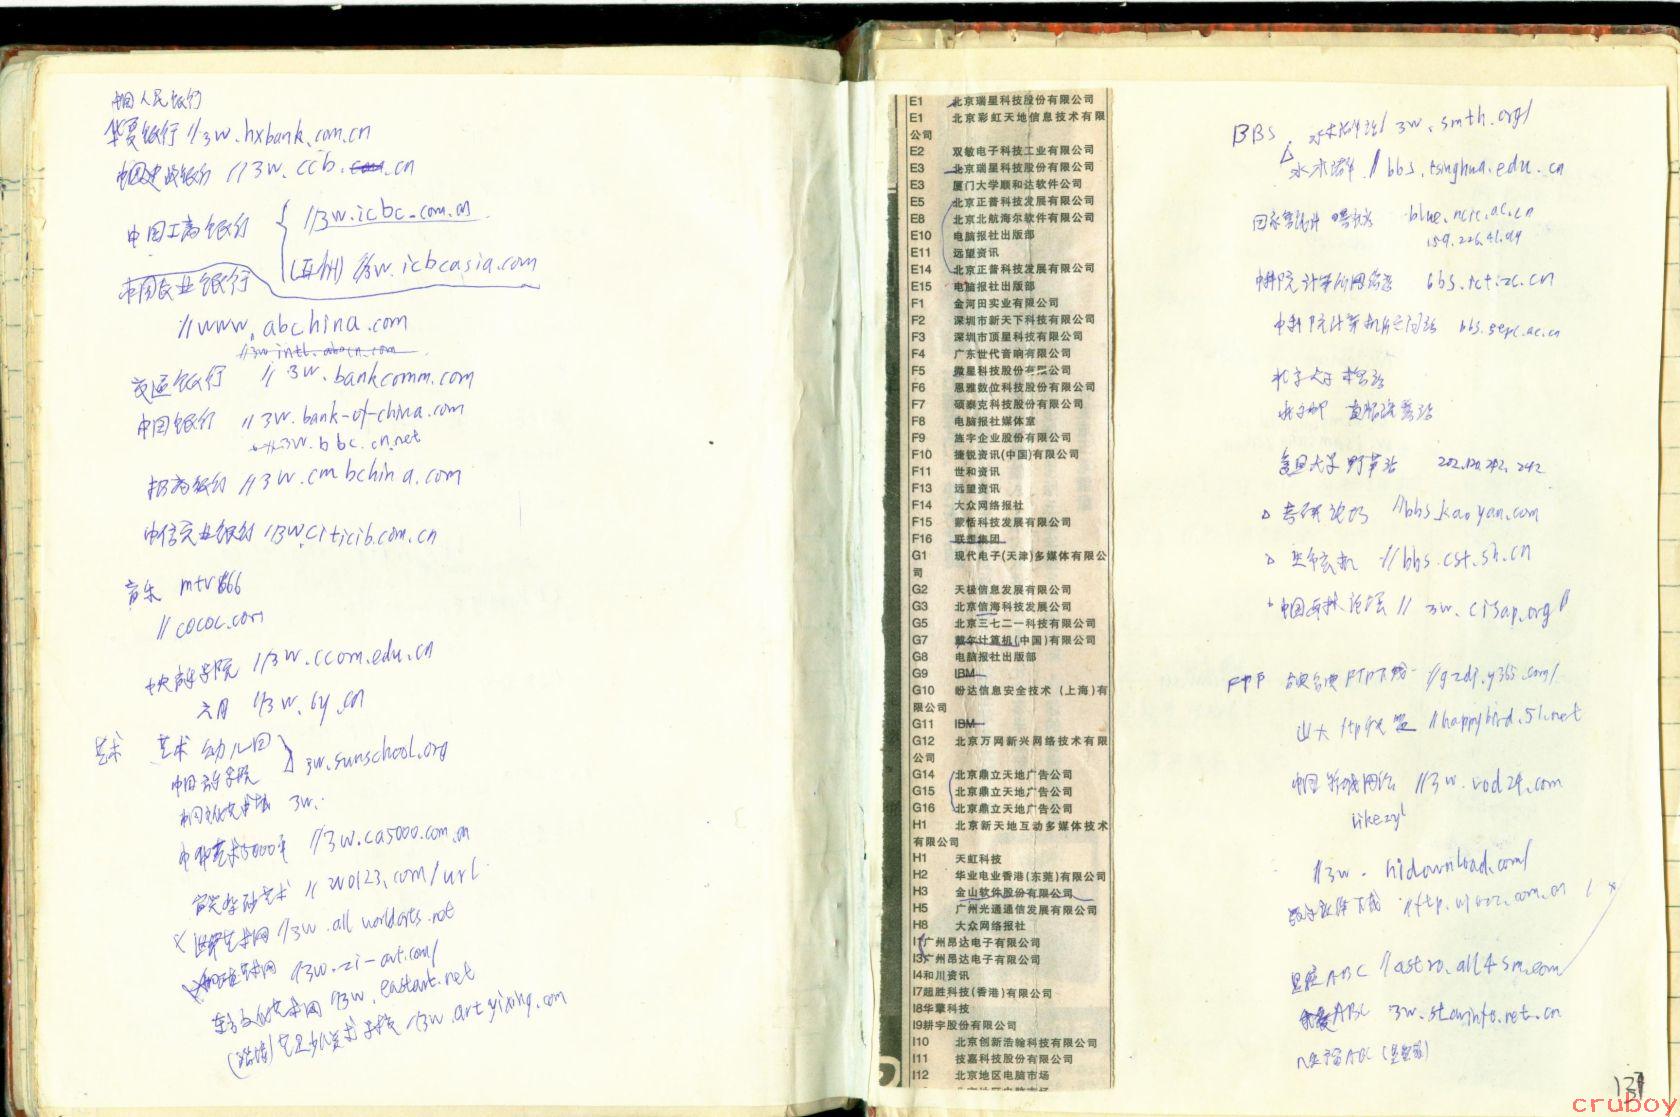 中国人民银行
华夏银行 //3w.hxbank.com.cn
中国建设银行 //3w.ccb.com.cn
中国工商银行 { //3w.icbc.com.cn
(亚洲) //3w.icbcasia.com
中国农业银行
//www.abchina.com
//3w.intl.abocn.com
交通银行 //3w.bankcomm.com
中国银行 //3w.bank-of-china.com
3w.bbc.cn.net
招商银行 //3w.cmbchina.com
中信实业银行 //3w.citicib.com.cn
音乐 mtv666
//cococ.com
中央音乐学院 //3w.ccom.edu.cn
六月 //3w.6y.cn
艺术 艺术幼儿园 } 3w.sunschool.org
中国音乐学院
3w.
中华艺术5000年 //3w.ca5000.com.cn
艺术 //2v0123.com/url
世界艺术网 //3w.allworldarts.net
艺术网 //3w.zi-art.com/
东方文化艺术网 //3w.eastart.net
//3w.artyixing.com
E1 北京瑞星科技股份有限公司
E1 北京彩虹天地信息技术有限
公司
E2 双敏电子科技工业有限公司
E3 北京瑞星科技股份有限公司
E3 厦门大学顺和达软件公司
E5 北京正普科技发展有限公司
E8 北京北航海尔软件有限公司
E10 电脑报社出版部
E11 远望资讯
E14 北京正普科技发展有限公司
E15 电脑报社出版部
F1 金河田实业有限公司
F2 深圳市新天下科技有限公司
F3 深圳市顶星科技有限公司
F4 广东世代音响有限公司
F5 微星科技股份有限公司
F6 恩雅数位科技股份有限公司
F7 硕泰克科技股份有限公司
F8 电脑报社媒体室
F9 旌宇企业股份有限公司
F10 捷锐资讯(中国)有限公司
F11 世和资讯
F13 远望资讯
F14 大众网络报社
F15 蒙恬科技发展有限公司
F16 联想集团
G1 现代电子(天津)多媒体有限公
司
G2 天极信息发展有限公司
G3 北京信海科技发展公司
G5 北京三七二一科技有限公司
G7 戴尔计算机(中国)有限公司
G8 电脑报社出版部
G9 IBM
G10 盼达信息安全技术(上海)有
限公司
G11 IBM
G12 北京万网新兴网络技术有限
公司
G14 北京鼎立天地广告公司
G15 北京鼎立天地广告公司
G16 北京鼎立天地广告公司
H1 北京新天地互动多媒体技术
有限公司
H1 天虹科技
H2 华业电业香港(东莞)有限公司
H3 金山软件股份有限公司
H5 广州光通通信发展有限公司
H8 大众网络报社
I1 广州昂达电子有限公司
I3 广州昂达电子有限公司
I4和川资讯
I7超胜科技(香港)有限公司
I8华擎科技
I9耕宇股份有限公司
I10 北京创新浩翰科技有限公司
I11 技嘉科技股份有限公司
I12 北京地区电脑市场
BBS 3w.smth.org/
水木清华 //bbs.tsinghua.edu.cn
blue.ncic.ac.cn
159.226.41.99
中科院计算所网络 bbs.
北京大学
复旦大学 202.120.242.242
考研论坛 //bbs.kaoyan.com
//bbs.cst.sh.cn
中国 论坛 // 3w.cisap.org
FTP //gzdj.y365.com/
山大 ftp //happybird.51.net
中国 网络 //3w.vod24.com
likezyl
//3w.hidownload.com/
软件下载
星座ABC //astro.all4sm.com
ABC 3w.starinfo.net.cn
137
cruboy